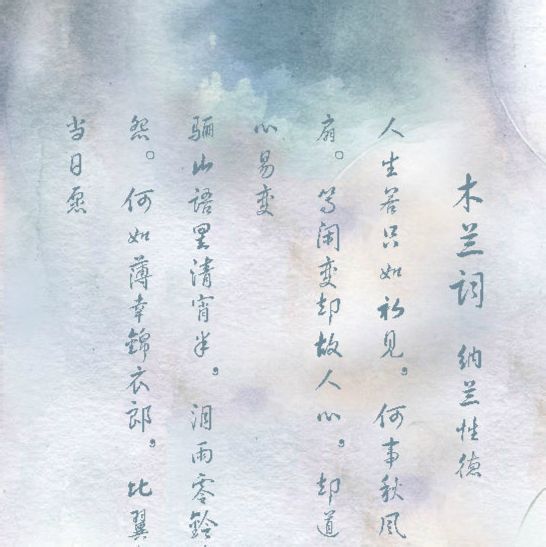 木兰词 纳兰性德
人生若只如初见。何事秋风
扇。等闲变却故人心。却道
心易变
骊山语罢清宵半，泪雨零鈴
怨。何如薄幸錦衣郎，比翼
当日愿